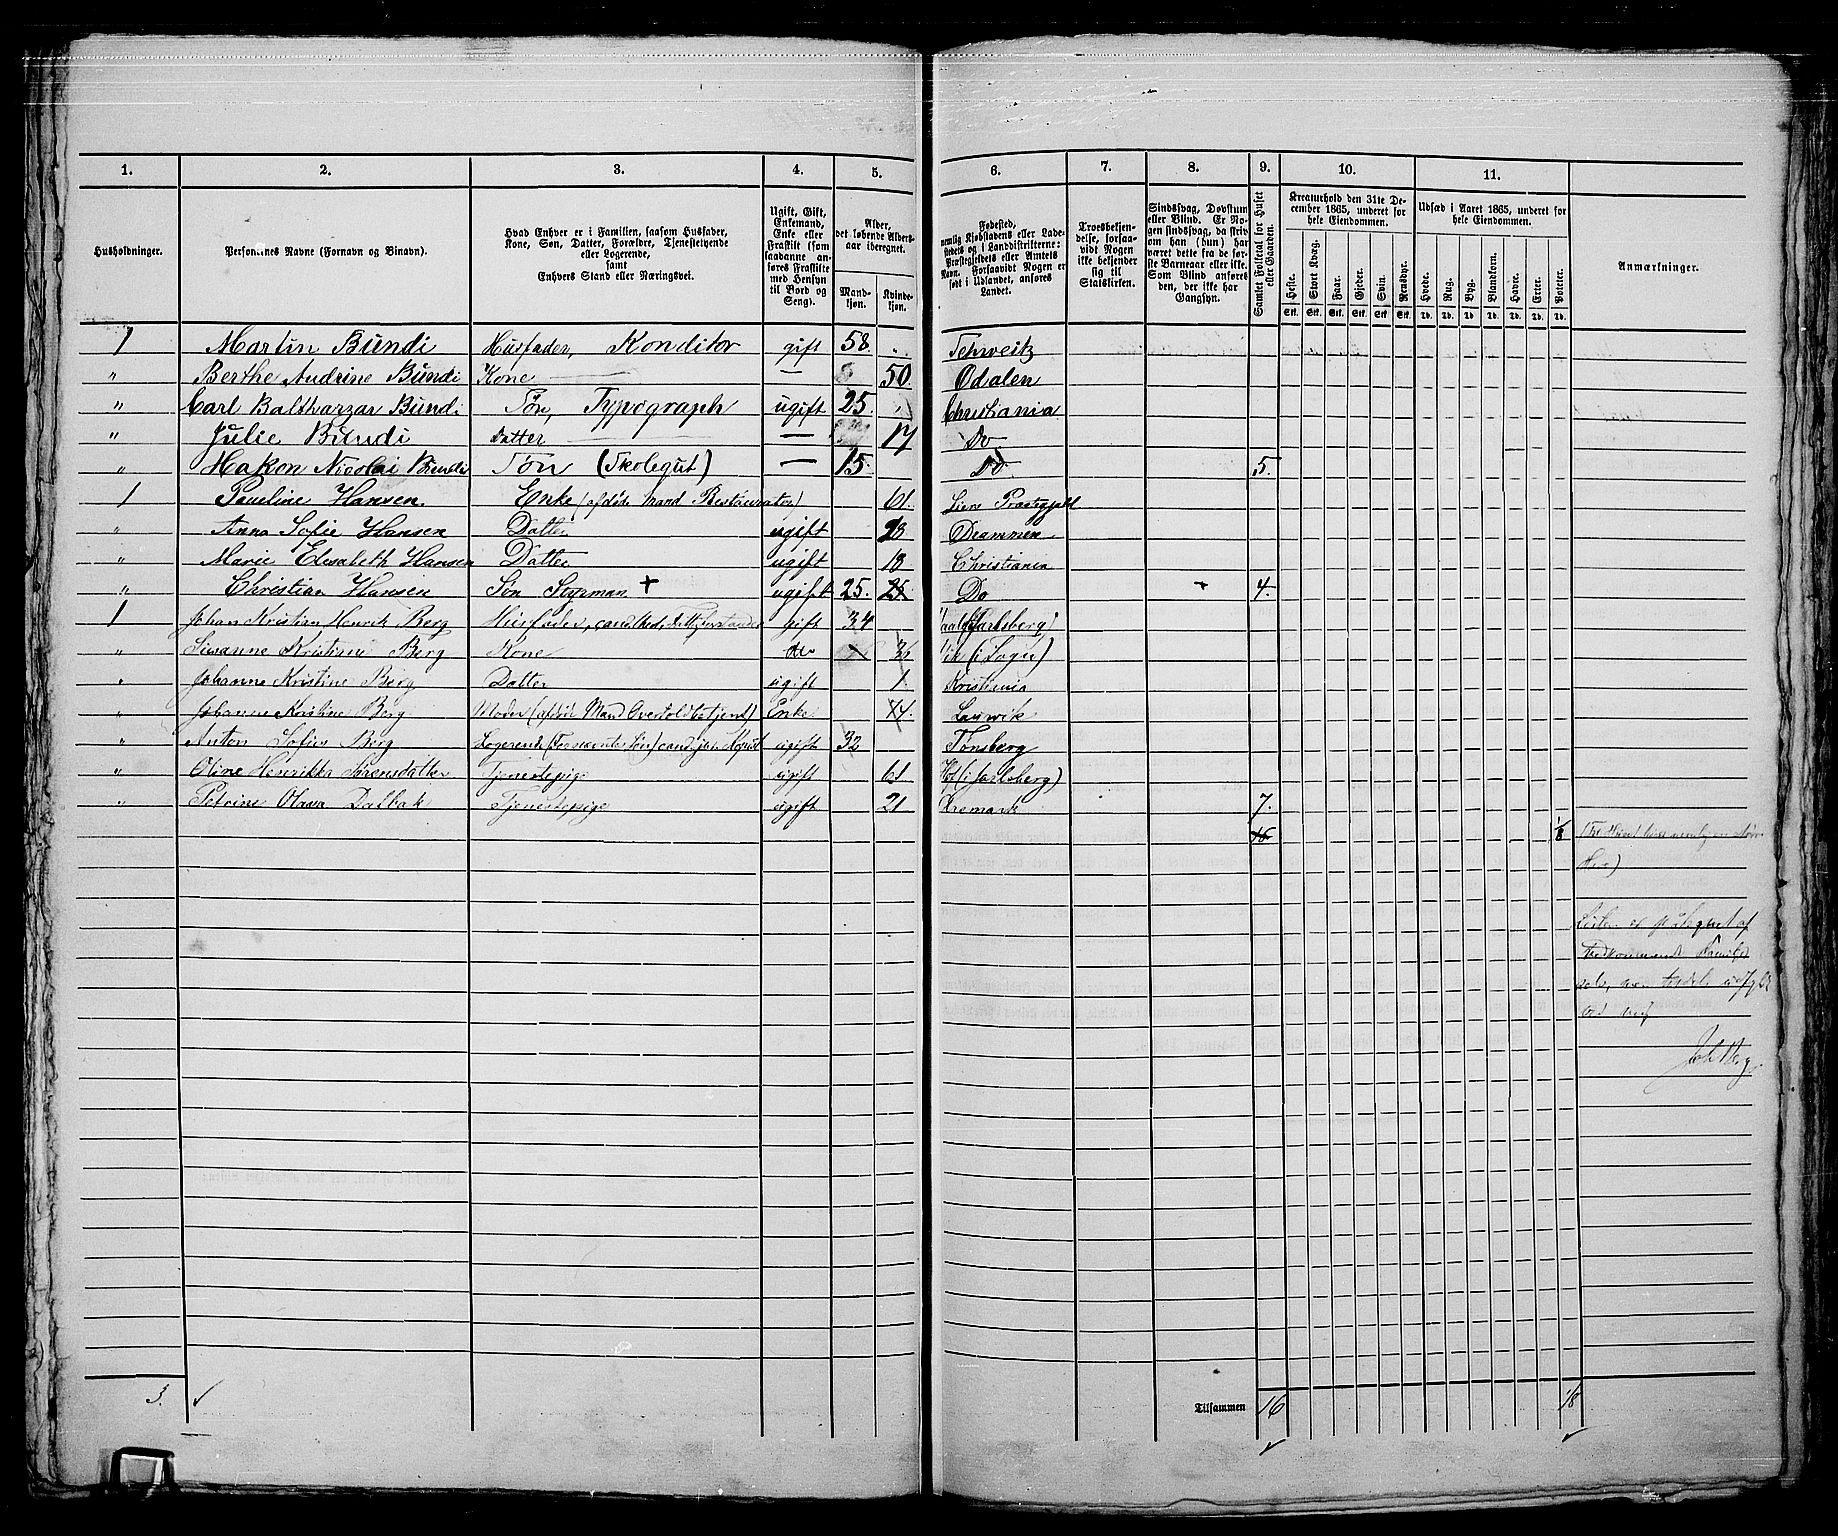 1. 2. 3. 4. 5. 6. 7. 8. 9. 10. 11.
Husholdninger.
Personernes Navne (Fornavn og Binavn).
Hvad Enhver er i Familien, saasom Husfader,
Kone, Søn, Datter, Forældre, Tjenestetyende
eller Logerende,
samt
Enhvers Stand eller Næringsvei.
Ugift, Gift,
Enkemand,
Enke eller
Fraskilt (som
saadanne an-
føres Fraskilte
med Hensyn
til Bord og
Seng).
Alder,
det løbende Alders-
aar iberegnet.
Mand-
kjøn.
Kvinde-
kjøn.
Fødested,
nemlig Kjøbstadens eller Lade-
stedets og i Landdistrikterne:
Præstegjeldets eller Amtets
Navn. Forsaavidt Nogen er
født i Udlandet, anføres
Landet.
Troesbekjen-
delse, forsaa-
vidt Nogen
ikke bekjender
sig til
Statskirken.
Sindssvag, Døvstum
eller Blind. Er No-
gen sindssvag, da skriv
om han (hun) har
været dette fra de før-
ste Barneaar eller ikke.
Som Blind anføres
den, der ikke har
Gangsyn.
Samlet Folketal for Huset
eller Gaarden.
Kreaturhold den 31te De-
cember 1865, underet for
hele Eiendommen.
Heste. Stort Kvæg. Faar. Gjeder. Svin. Rensdyr.
Stk. Stk. Stk. Stk. Stk. Stk.
Udsæd i Aaret 1865, underet for
hele Eiendommen.
Hvede. Rug. Byg. Blandkorn. Havre. Erter. Poteter.
Td. Td. Td. Td. Td. Td. Td.
Anmærkninger.
1 Martin Bundi Husfader, Konditor gift 58. " Schweitz
" Berthe Andrine Bundi Kone — 50. Odalen
" Carl Baltharzar Bundi Søn, Typograph ugift 25. " Christiania
" Julie Bundi Datter — 17 Do
" Hakon Nicolai Bundi Søn (Skolegut) — 15. Do 5.
1 Pauline Hansen. Enke (afdøde Mand Restaurator) 61. Liere Præstegjeld
" Anna Sofie Hansen Datter ugift 28 Drammen
" Marie Elisabeth Hansen Datter ugift 18 Christiania
" Christian Hansen Søn Styrman + ugift 25. 25 Do + 4.
1 Johan Kristian Henrik Berg Husfader, gift 34 Jarlsberg)
" Susanne Kristine Berg Kone do 36 Vik (i Sogn)
" Johanne Kristine Berg Datter ugift 1 Kristiania
" Johanne Kristine Berg Moder (afdøde Mand Overtoldbetjent) Enke Laurvik
" Anton Sofus Berg Logerende ugift 32 Tønsberg
" Oline Henrikka Sørensdatter Tjenestepige ugift 61 Hof (i Jarlsberg)
" Petrine Olava Dalbak Tjenestepige ugift 21 7.
16 1/8
3. ✓ Tilsammen 16 1/8